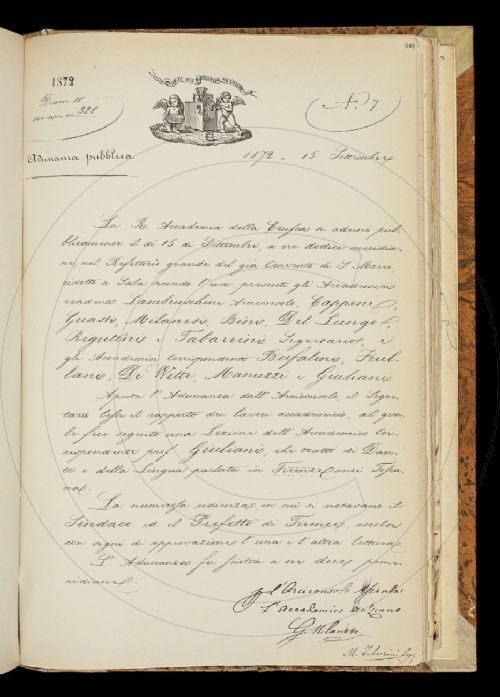 1872
Diario 18
328
N. 7
Adunanza pubblica
1872 - 15 Settembre
La R. Accademia della Crusca si adunò pub-
blicamente il dì 15 di Settembre, a ore dodici meridia-
ne, nel Refettorio grande del già Convento di S. Marco,
ridotto a Sala secondo l'uso, presenti gli Accademici
residenti Lambruschini Arciconsolo, Capponi,
Guasti, Milanesi, Bini, Del Lungo,
Rigutini e Tabarrini Segretario, e
gli Accademici corrispondenti Bufalini, Franc
lani, De Witte, Manuzzi e Giuliani.
Aperta l'Adunanza dall'Arciconsolo, il Segre-
tario lesse il rapporto dei lavori accademici, al qua-
le fece seguito una Lezione dell'Accademico cor-
rispondente prof. Giuliani, che trattò di Dan-
te e della Lingua parlata in Firenze
La numerosa udienza in cui si notavano il
Sindaco ed il Prefetto di Firenze accolse
con segni di approvazione l'una e l'altra lettura.
L'Adunanza fu sciolta a ore due pome-
ridiane.
L'Arciconsolo
L'Accademico
G. Milanesi
M. Tabarrini Seg.